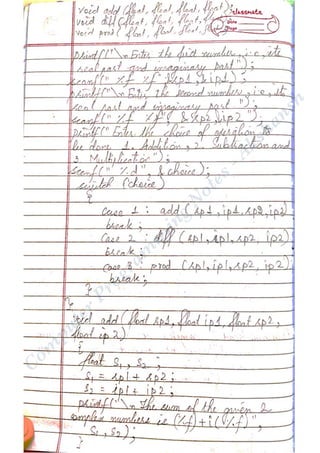 void add (float, float, float, float);
void diff (float, float, float, float);
void prod (float, float, float, float
classmate
Date
Page
printf("\n Enter the first number, i.e, its
real part and imaginary part");
scanf("%f %f", &rp1, &ip1);
printf("\n Enter the second number, i.e, its
real part and imaginary part ");
scanf("%f %f", &rp2, ip2);
printf("Enter the choice of operation to
be done 1. Addition, 2. Subtraction and
3. Multiplication");
scanf("%d", &choice);
switch (choice)
{
case 1 : add (rp1, ip1, rp2, ip2)
break;
case 2 : diff (rp1, ip1, rp2, ip2)
break;
case 3 : prod (rp1, ip1, rp2, ip2)
break;
}
}
void add (float rp1, float ip1, float rp2,
float ip2)
{
float s1, s2 ;
s1 = rp1 + rp2 ;
s2 = ip1 + ip2 ;
printf("\n The sum of the given 2
complex numbers is (%f)+i(%f)",
s1, s2);
}
Computer Programming Notes